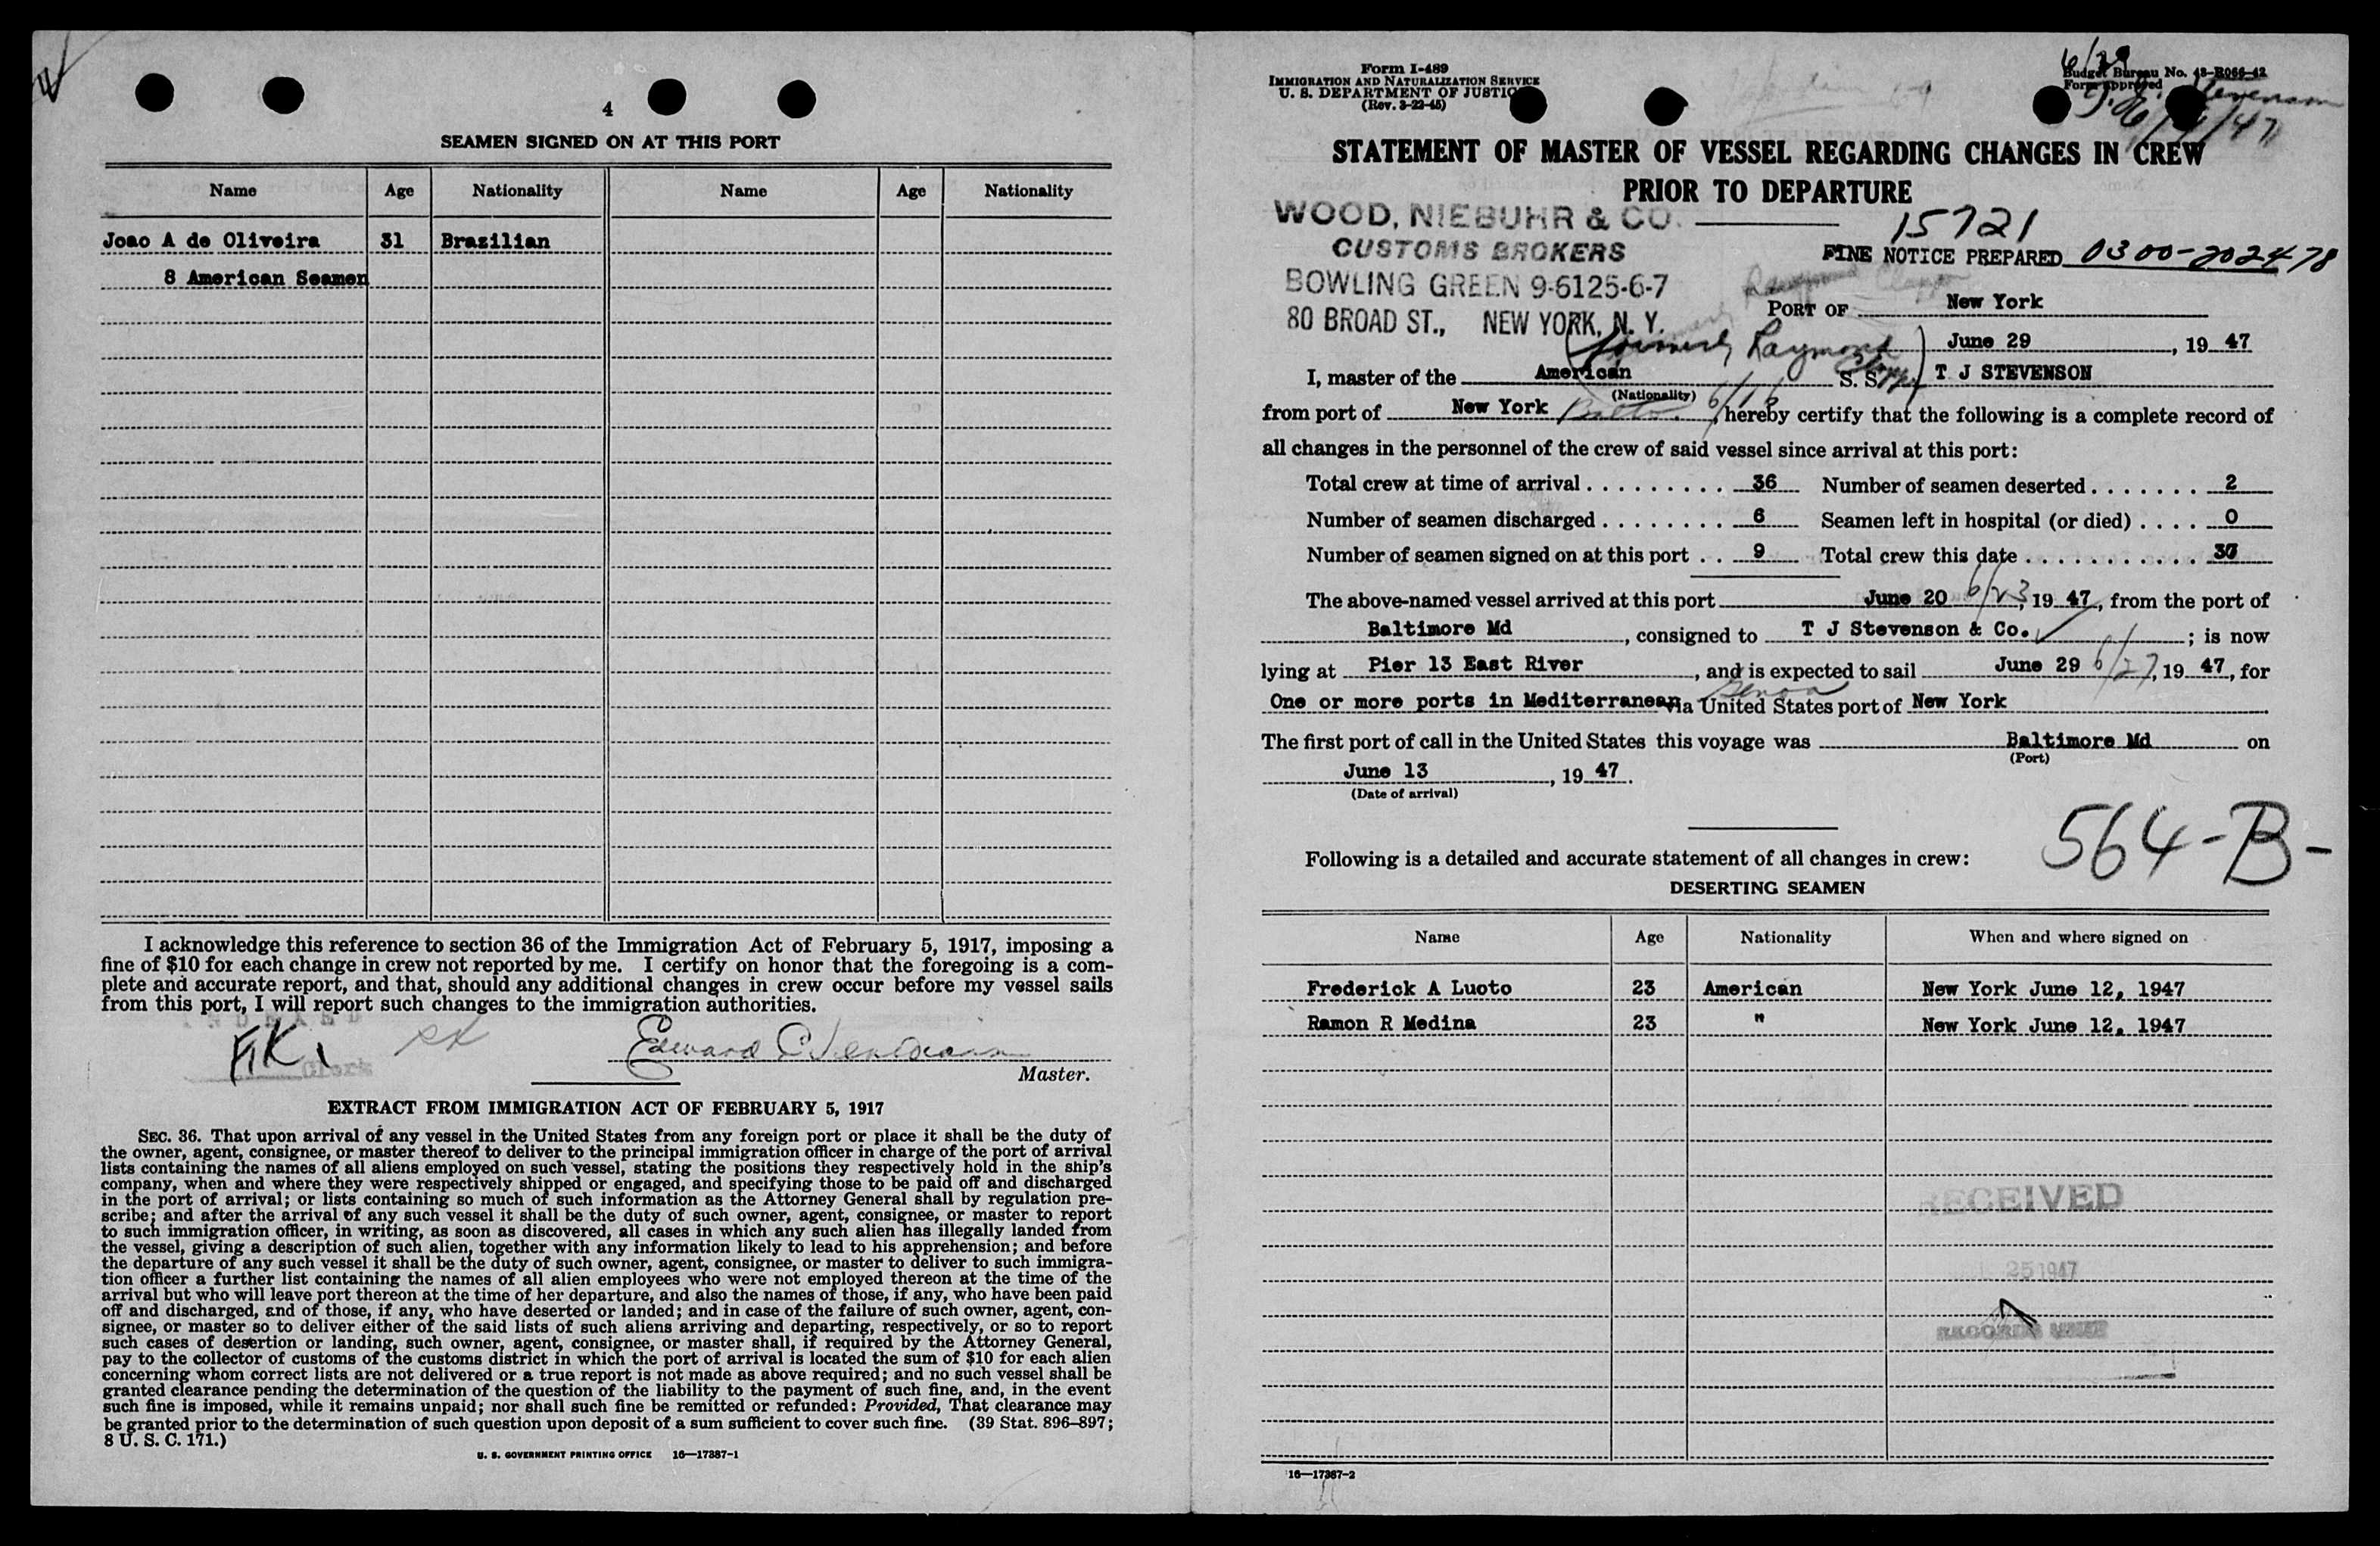 4
SEAMEN SIGNED ON AT THIS PORT
Name Age Nationality Name Age Nationality
Joao A de Oliveira 31 Brazilian
8 American Seamen
I acknowledge this reference to section 36 of the Immigration Act of February 5, 1917, imposing a
fine of $10 for each change in crew not reported by me. I certify on honor that the foregoing is a com-
plete and accurate report, and that, should any additional changes in crew occur before my vessel sails
from this port, I will report such changes to the immigration authorities.
Clerk
Edward C
Master.
EXTRACT FROM IMMIGRATION ACT OF FEBRUARY 5, 1917
SEC. 36. That upon arrival of any vessel in the United States from any foreign port or place it shall be the duty of
the owner, agent, consignee, or master thereof to deliver to the principal immigration officer in charge of the port of arrival
lists containing the names of all aliens employed on such vessel, stating the positions they respectively hold in the ship's
company, when and where they were respectively shipped or engaged, and specifying those to be paid off and discharged
in the port of arrival; or lists containing so much of such information as the Attorney General shall by regulation pre-
scribe; and after the arrival of any such vessel it shall be the duty of such owner, agent, consignee, or master to report
to such immigration officer, in writing, as soon as discovered, all cases in which any such alien has illegally landed from
the vessel, giving a description of such alien, together with any information likely to lead to his apprehension; and before
the departure of any such vessel it shall be the duty of such owner, agent, consignee, or master to deliver to such immigra-
tion officer a further list containing the names of all alien employees who were not employed thereon at the time of the
arrival but who will leave port thereon at the time of her departure, and also the names of those, if any, who have been paid
off and discharged, and of those, if any, who have deserted or landed; and in case of the failure of such owner, agent, con-
signee, or master so to deliver either of the said lists of such aliens arriving and departing, respectively, or so to report
such cases of desertion or landing, such owner, agent, consignee, or master shall, if required by the Attorney General,
pay to the collector of customs of the customs district in which the port of arrival is located the sum of $10 for each alien
concerning whom correct lists are not delivered or a true report is not made as above required; and no such vessel shall be
granted clearance pending the determination of the question of the liability to the payment of such fine, and, in the event
such fine is imposed, while it remains unpaid; nor shall such fine be remitted or refunded: Provided, That clearance may
be granted prior to the determination of such question upon deposit of a sum sufficient to cover such fine. (39 Stat. 896–897;
8 U. S. C. 171.)
U. S. GOVERNMENT PRINTING OFFICE 16—17387-1
Form I-489
IMMIGRATION AND NATURALIZATION SERVICE
U. S. DEPARTMENT OF JUSTICE
(Rev. 3-22-45)
6/29
Budget Bureau No. 43-R066-42
Form approved
T. J. Stevenson
STATEMENT OF MASTER OF VESSEL REGARDING CHANGES IN CREW
PRIOR TO DEPARTURE
WOOD, NIEBUHR & CO.
CUSTOMS BROKERS
BOWLING GREEN 9-6125-6-7
80 BROAD ST., NEW YORK, N. Y.
15721
FINE NOTICE PREPARED 0300-202478
PORT OF New York
(formerly Raymond Clapper)
June 29, 1947
I, master of the American S. S. T J STEVENSON
(Nationality)
from port of New York Balto. 6/16, hereby certify that the following is a complete record of
all changes in the personnel of the crew of said vessel since arrival at this port:
Total crew at time of arrival 36 Number of seamen deserted 2
Number of seamen discharged 6 Seamen left in hospital (or died) 0
Number of seamen signed on at this port 9 Total crew this date 37
The above-named vessel arrived at this port June 20 6/23, 1947, from the port of
Baltimore Md, consigned to T J Stevenson & Co. ; is now
lying at Pier 13 East River, and is expected to sail June 29 6/27, 1947, for
Genoa
One or more ports in Mediterranean via United States port of New York
The first port of call in the United States this voyage was Baltimore Md on
(Port)
June 13, 1947.
(Date of arrival)
564-B-
Following is a detailed and accurate statement of all changes in crew:
DESERTING SEAMEN
Name Age Nationality When and where signed on
Frederick A Luoto 23 American New York June 12, 1947
Ramon R Medina 23 " New York June 12, 1947
RECEIVED
25 1947
RECORDS UNIT
16—17387-2